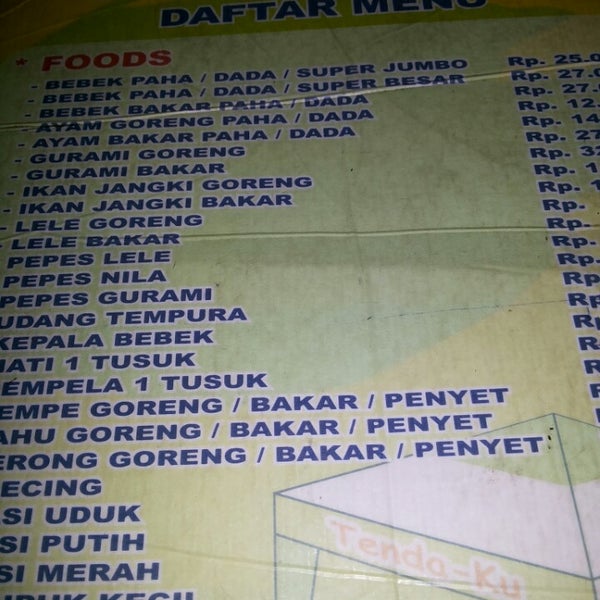 DAFTAR MENU
* FOODS
- BEBEK PAHA / DADA / SUPER JUMBO Rp. 25.0
- BEBEK PAHA / DADA / SUPER BESAR Rp. 27.0
- BEBEK BAKAR PAHA / DADA Rp. 27.
- AYAM GORENG PAHA / DADA Rp. 12.
- AYAM BAKAR PAHA / DADA Rp. 14
- GURAMI GORENG Rp. 27
- GURAMI BAKAR Rp. 32
- IKAN JANGKI GORENG Rp. 1
- IKAN JANGKI BAKAR Rp. 1
- LELE GORENG Rp.
- LELE BAKAR Rp.
PEPES LELE Rp.
PEPES NILA Rp.
PEPES GURAMI Rp
UDANG TEMPURA Rp
KEPALA BEBEK R
HATI 1 TUSUK R
EMPELA 1 TUSUK R
EMPE GORENG / BAKAR / PENYET
AHU GORENG / BAKAR / PENYET
ERONG GORENG / BAKAR / PENYET
ECING
SI UDUK
SI PUTIH
SI MERAH
UDUK KECIL
Tenda-Ku